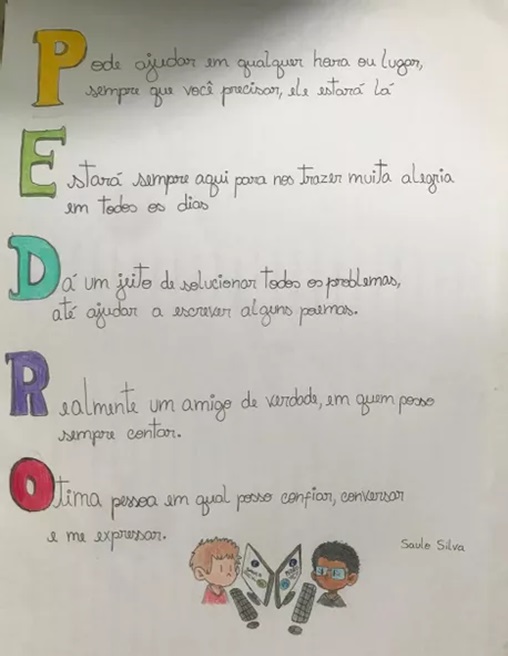 Pode ajudar em qualquer hora ou lugar,
sempre que você precisar, ele estará lá
Estará sempre aqui para nos trazer muita alegria
em todos os dias
Dá um jeito de solucionar todos os problemas,
até ajudar a escrever alguns poemas.
Realmente um amigo de verdade, em quem posso
sempre contar.
Otima pessoa em qual posso confiar, conversar
e me expressar.
Saulo Silva